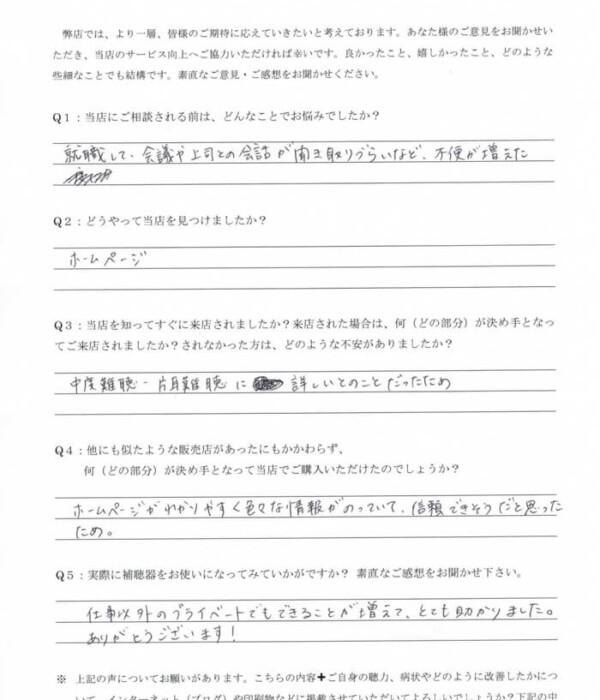 弊店では、より一層、皆様のご期待に応えていきたいと考えております。あなた様のご意見をお聞かせい
ただき、当店のサービス向上へご協力いただければ幸いです。良かったこと、嬉しかったこと、どのような
些細なことでも結構です。素直なご意見・ご感想をお聞かせください。
Q1：当店にご相談される前は、どんなことでお悩みでしたか？
就職して、会議や上司との会話が聞き取りづらいなど、不便が増えた
Q2：どうやって当店を見つけましたか？
ホームページ
Q3：当店を知ってすぐに来店されましたか？来店された場合は、何（どの部分）が決め手となっ
てご来店されましたか？されなかった方は、どのような不安がありましたか？
中度難聴－片耳難聴に 詳しいとのことだったため
Q4：他にも似たような販売店があったにもかかわらず、
何（どの部分）が決め手となって当店でご購入いただけたのでしょうか？
ホームページがわかりやすく色々な情報がのっていて、信頼できそうだと思った
ため。
Q5：実際に補聴器をお使いになってみていかがですか？ 素直なご感想をお聞かせ下さい。
仕事以外のプライベートでもできることが増えて、とても助かりました。
ありがとうございます！
※ 上記の声についてお願いがあります。こちらの内容＋ご自身の聴力、病状やどのように改善したかにつ
いて、インターネット（ブログ）や印刷物などに掲載させていただいてよろしいでしょうか？下記の中